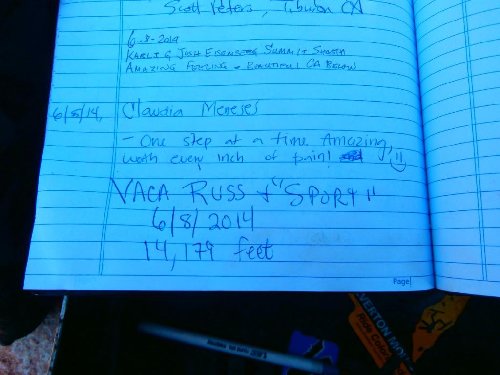 Scott Peters, Tiburon CA
6-8-2014
KARLI & JOSH EISENBERG SUMMIT SHASTA
AMAZING FEELING & BEAUTIFUL CA BELOW
6/8/14, Claudia Meneses
- One step at a time. Amazing,
worth every inch of pain!
VACA RUSS + "SPORT"
6/8/2014
14,179 feet
Page
VERTON MO